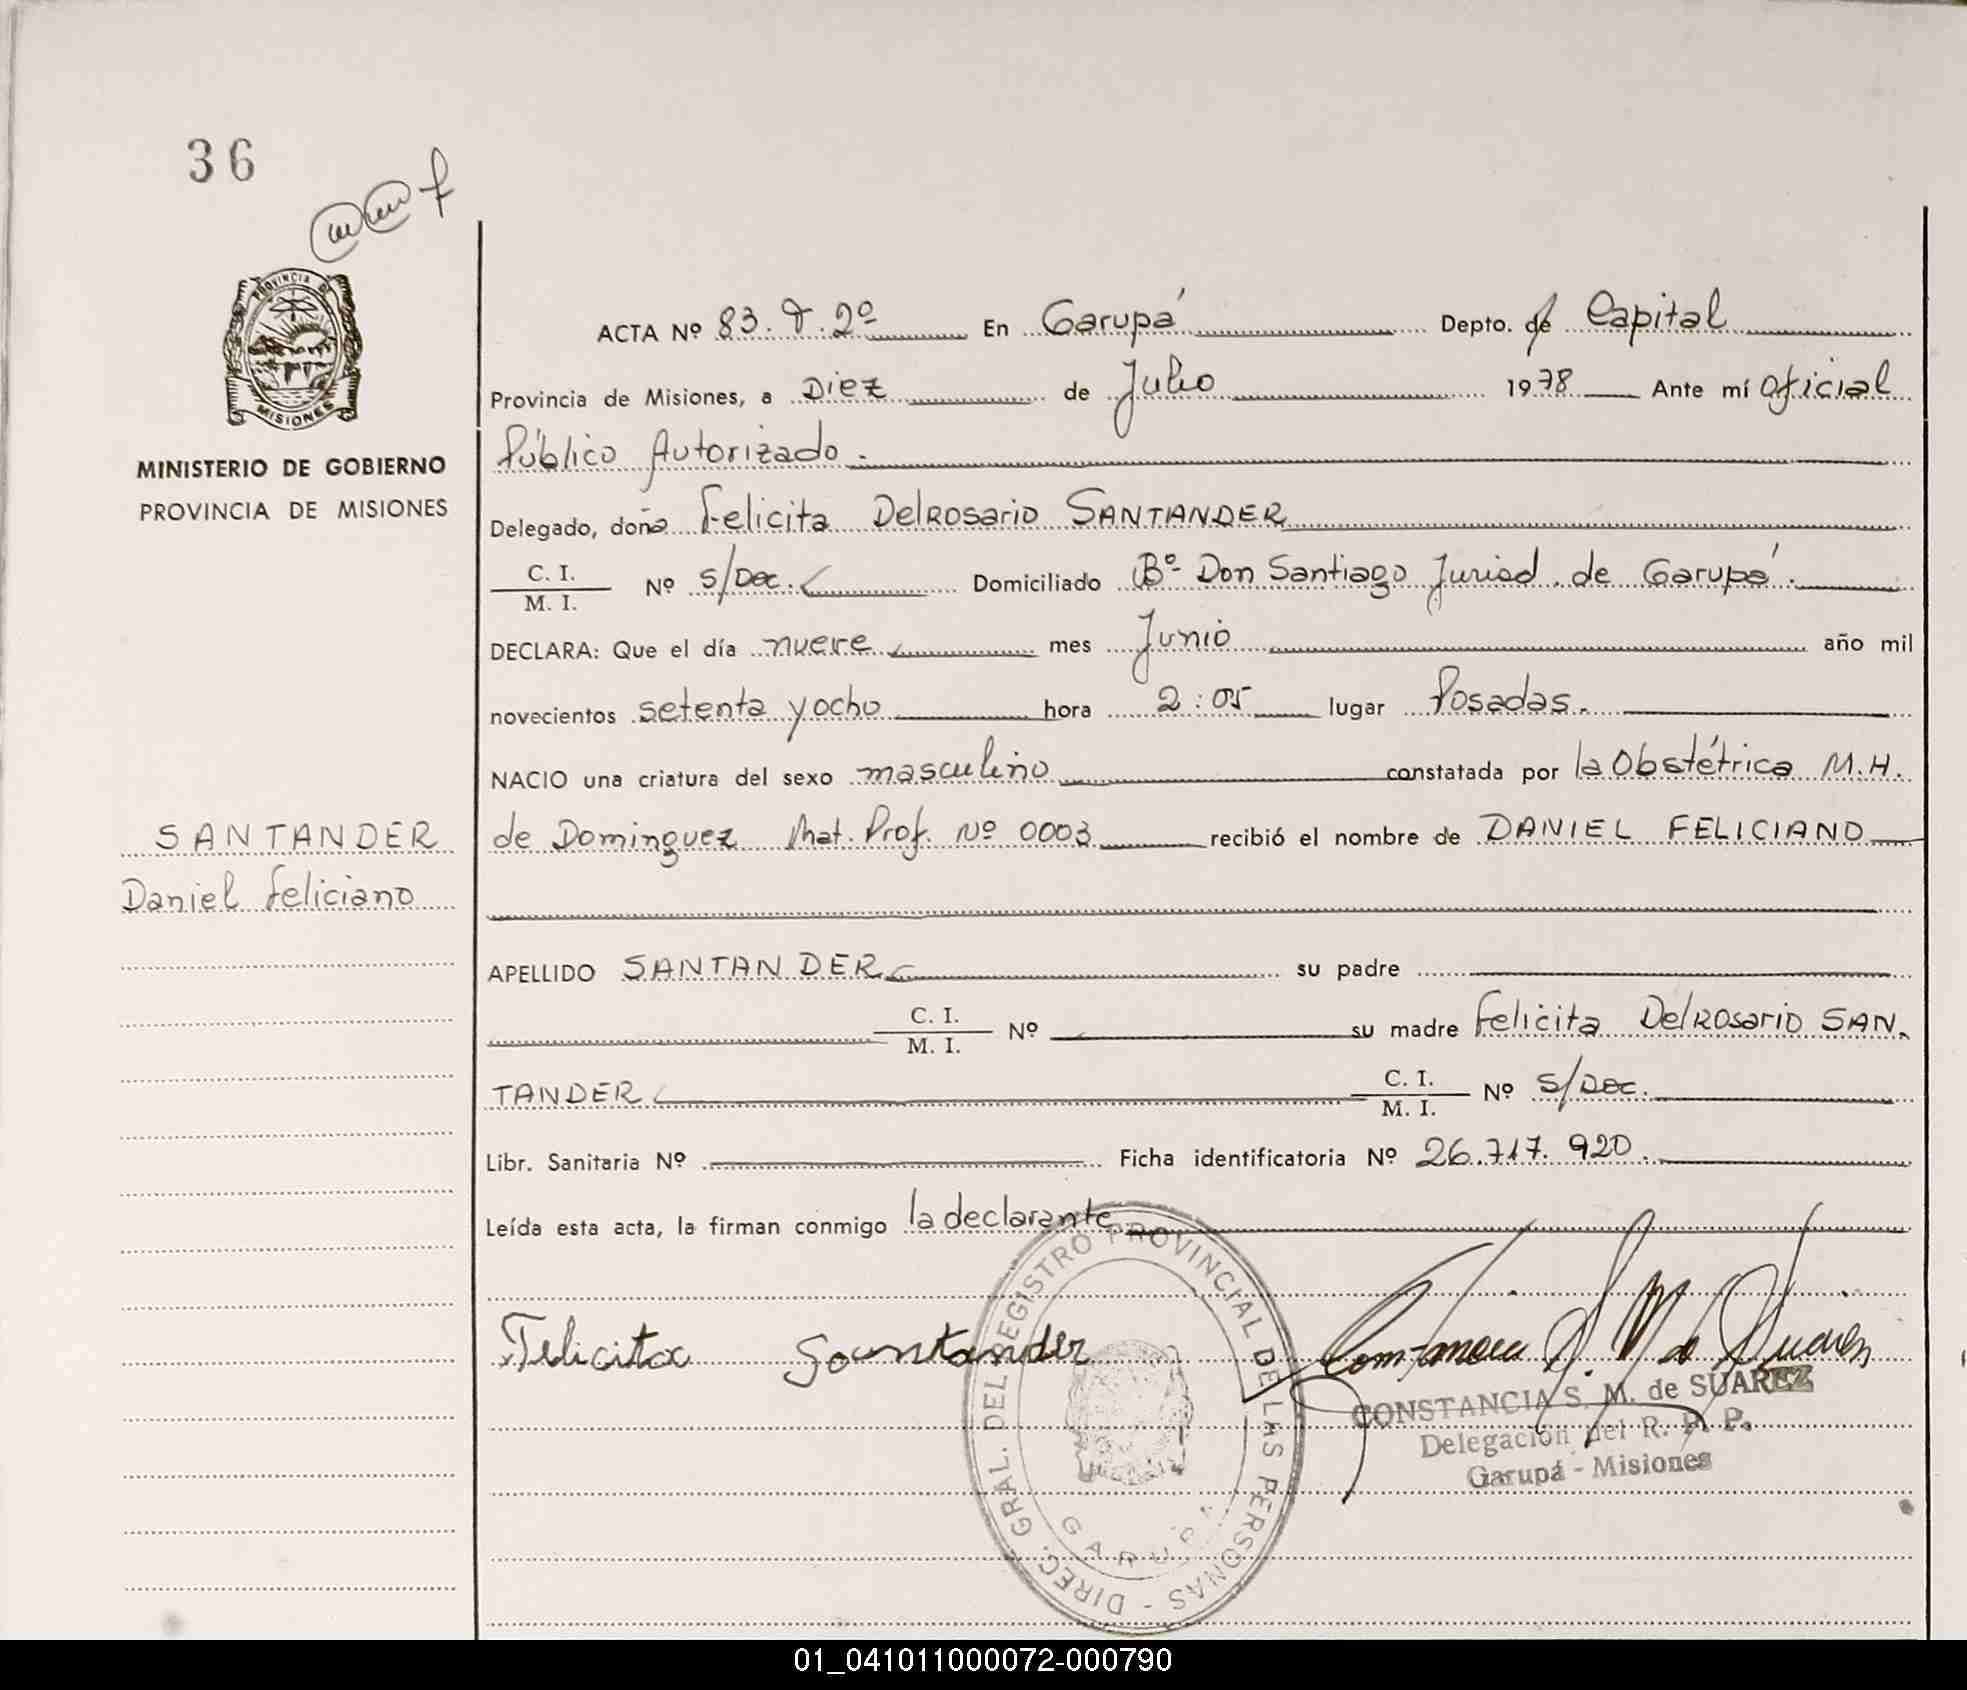 36
PROVINCIA DE
MISIONES
MINISTERIO DE GOBIERNO
PROVINCIA DE MISIONES
ACTA Nº 83. T. 2º En Garupá Depto. de Capital
Provincia de Misiones, a Diez de Julio 1978 Ante mí Oficial
Público Autorizado.
Delegado, doña Felicita DelRosario SANTANDER
C. I.
M. I. Nº S/Doc. Domiciliado Bº Don Santiago Jurisd. de Garupá.
DECLARA: Que el día nueve mes Junio año mil
novecientos setenta y ocho hora 2:05 lugar Posadas.
NACIO una criatura del sexo masculino constatada por la Obstétrica M.H.
de Dominguez Mat. Prof. Nº 0003 recibió el nombre de DANIEL FELICIANO
SANTANDER
Daniel Feliciano
APELLIDO SANTANDER su padre
C. I.
M. I. Nº su madre Felicita DelRosario SAN-
TANDER C. I.
M. I. Nº S/Doc.
Libr. Sanitaria Nº Ficha identificatoria Nº 26.717.920.
Leída esta acta, la firman conmigo la declarante
Felicita Santander
Constancia S. M. de Suarez
CONSTANCIA S. M. de SUAREZ
Delegación del R. P. P.
Garupá - Misiones
DIREC. GRAL. DEL REGISTRO PROVINCIAL DE LAS PERSONAS -
GARUPA
01_041011000072-000790